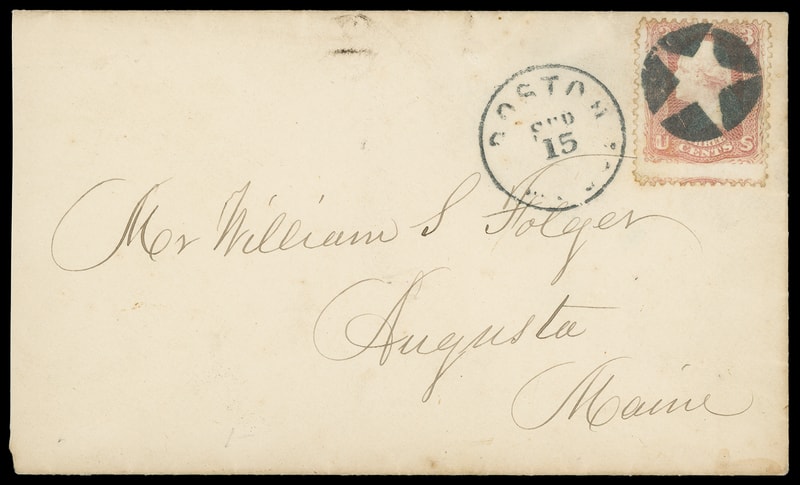 3
U S
CENTS
BOSTON
SEP
15
Mr William S Folger
Augusta
Maine